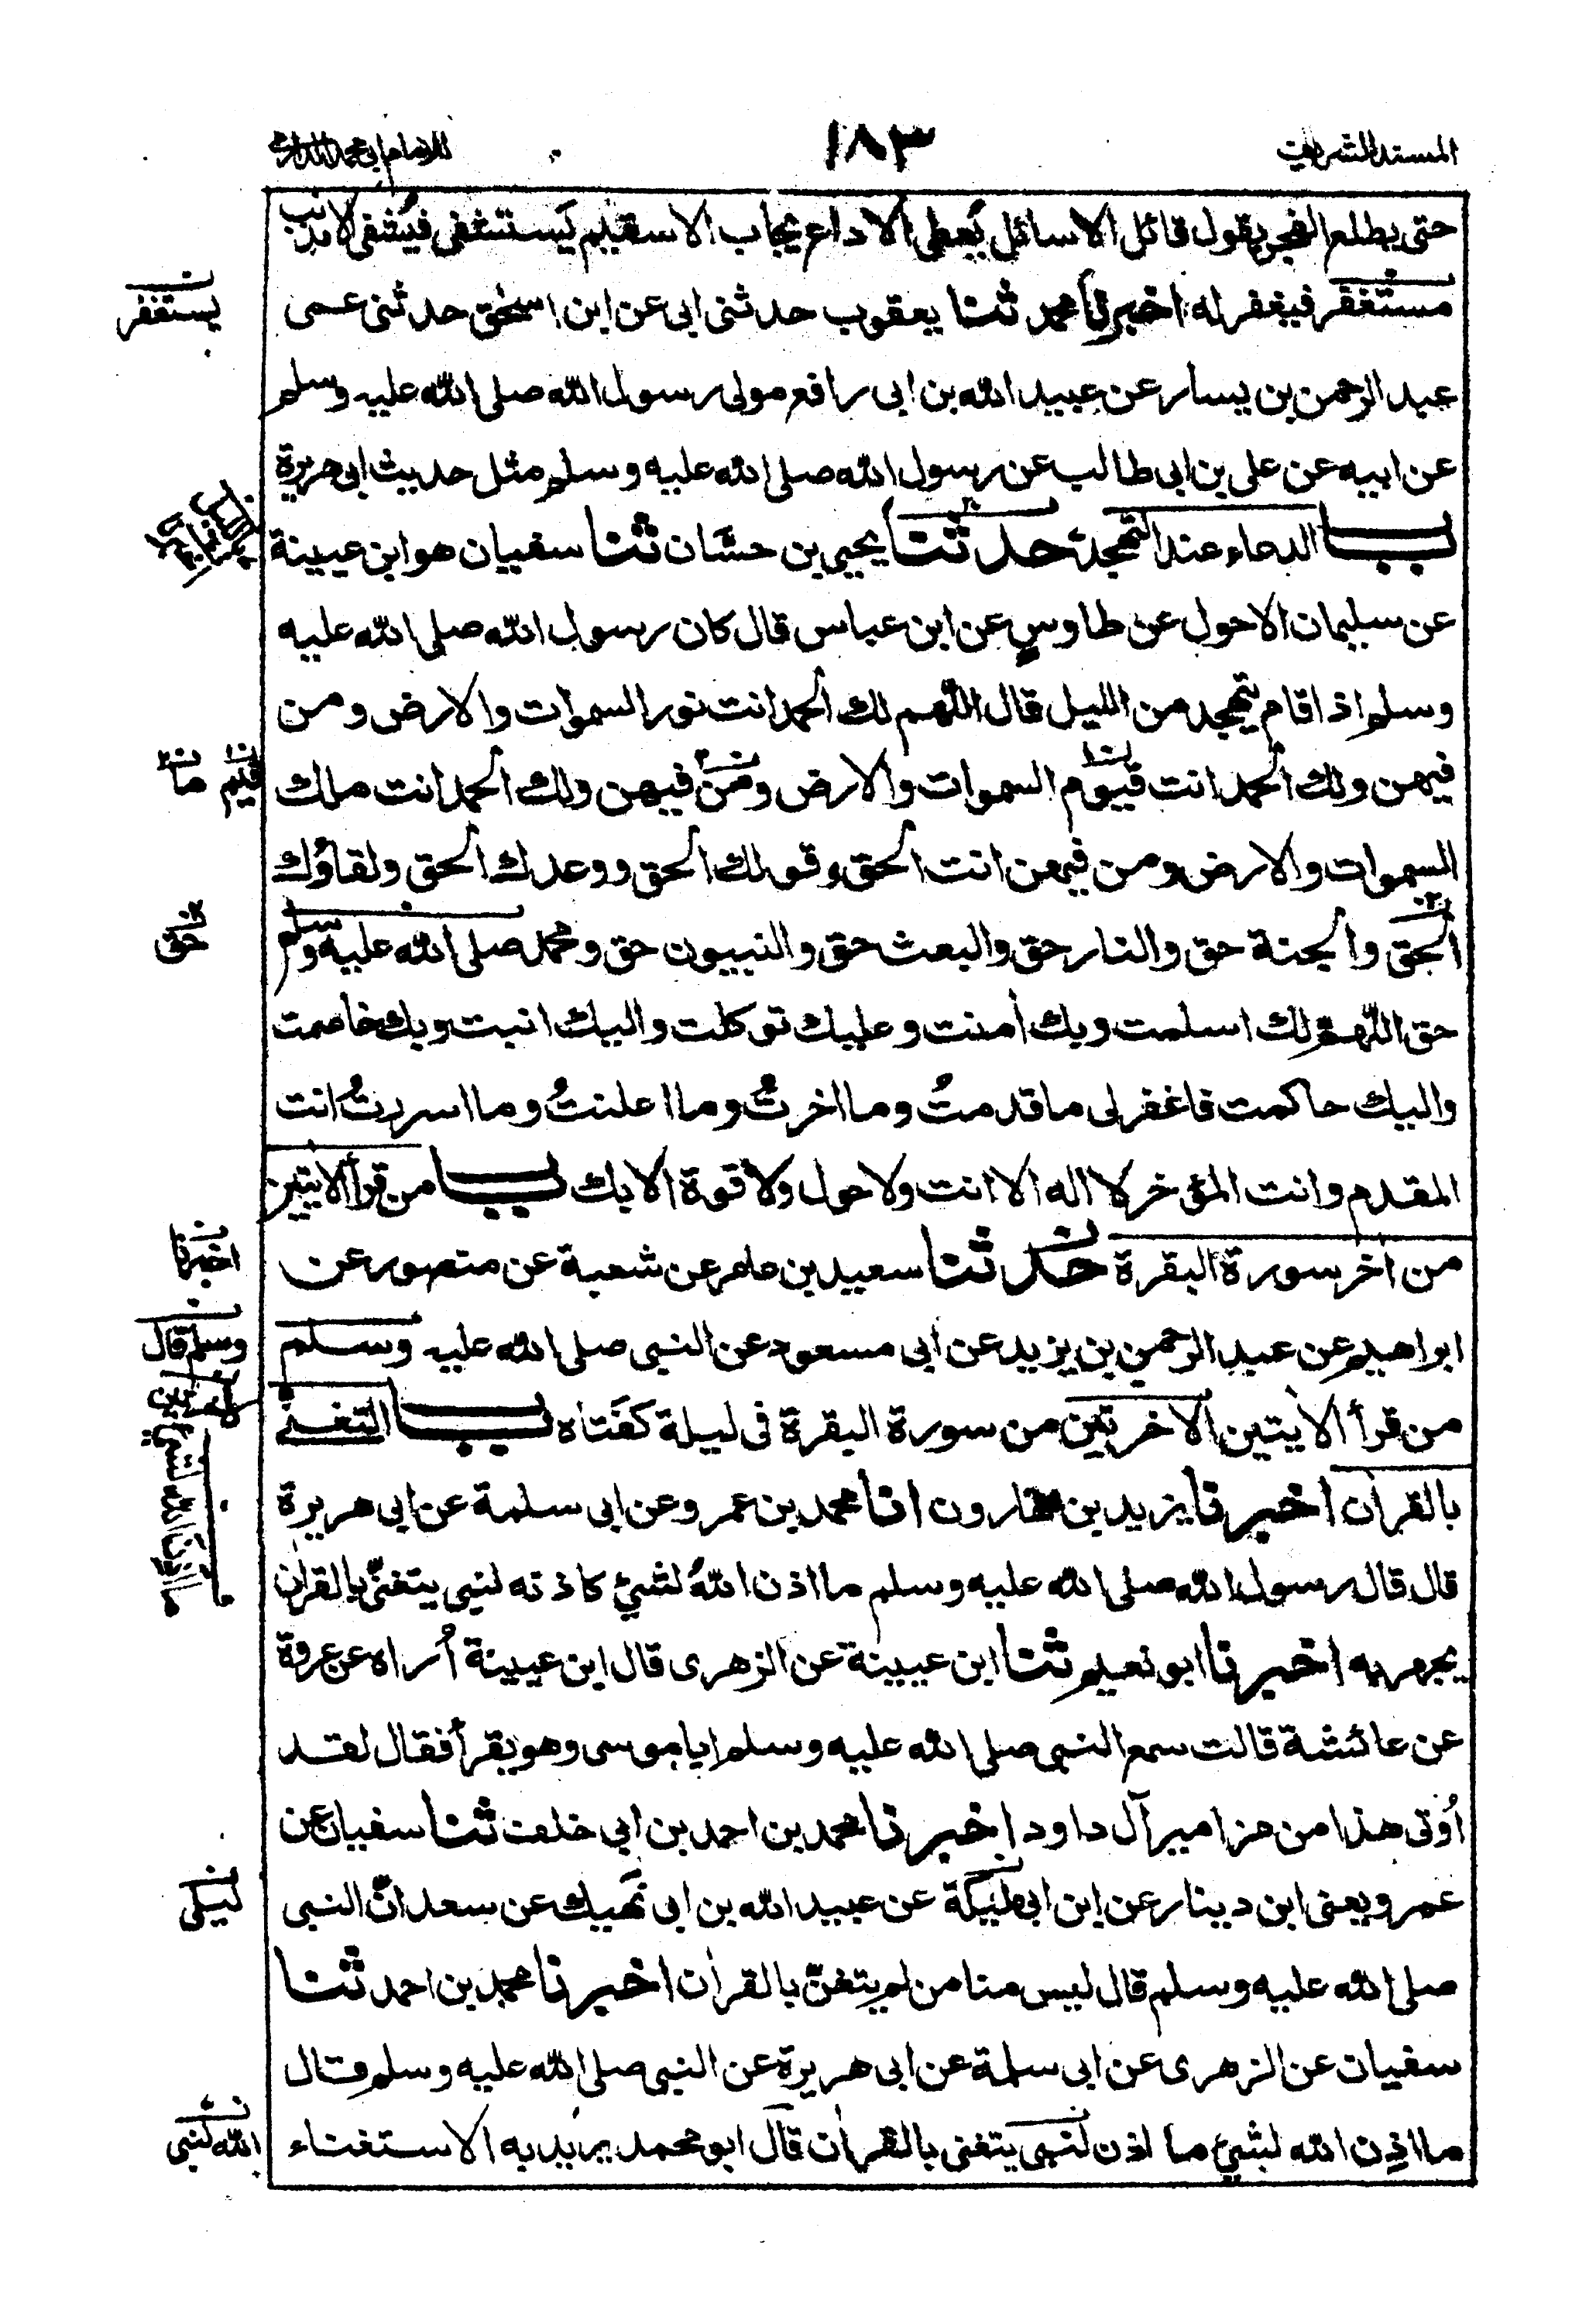 المسند الشريف ١٨٣ للامام ابى محمد الدارمى
حتى يطلع الفجر يقول قائل الا سائل يُعطى الا داع يجاب الا سقيم يَستشفى فيُشفى الا مذنب
مستغفر فيغفر له اخبرنا محمد ثنا يعقوب حدثنى ابى عن ابن اسحٰق حدثنى عمى
يستغفر
عبد الرحمن بن يسار عن عبيد الله بن ابى رافع مولى رسول الله صلى الله عليه وسلم
عن ابيه عن على بن ابى طالب عن رسول الله صلى الله عليه وسلم مثل حديث ابى هريرة
باب الدعاء عند التهجد حدثنا يحيى بن حسَّان ثنا سفيان هو ابن عيينة
عن سليمان الاحول عن طاوسٍ عن ابن عباس قال كان رسول الله صلى الله عليه
وسلم اذا قام يتهجد من الليل قال اللّٰهم لك الحمد انت نور السموات والارض ومن
فيهن ولك الحمد انت قيّوم السموات والارض ومَن فيهن ولك الحمد انت ملك
قيم ما
السموات والارض ومن فيهن انت الحق وقولك الحق ووعدك الحق ولقاؤك
الحق والجنة حق والنار حق والبعث حق والنبيون حق ومحمد صلى الله عليه وسلم
حق
حق اللّٰهم لك اسلمت وبك اٰمنت وعليك توكلت واليك انبت وبك خاصمت
واليك حاكمت فاغفر لى ما قدمتُ وما اخرتُ وما اعلنتُ وما اسررتُ انت
المقدم وانت المؤخر لا اله الا انت ولا حول ولا قوة الا بك باب من قرأ الاٰيتين
من اٰخر سورة البقرة حدثنا سعيد بن عامر عن شعبة عن منصور عن
اخبرنا
ابراهيم عن عبد الرحمن بن يزيد عن ابى مسعود عن النبى صلى الله عليه وسلم
وسلم قال
من قرأ الاٰيتين الاخرتين من سورة البقرة فى ليلة كفَتاه باب التغنّى
بالقراٰن اخبرنا يزيد بن هارون انا محمد بن عمرو عن ابى سلمة عن ابى هريرة
قال قال رسول الله صلى الله عليه وسلم ما اذن اللهُ لشئ كاذنه لنبى يتغنّى بالقراٰن
يجهر به اخبرنا ابو نعيم ثنا ابن عيينة عن الزهرى قال ابن عيينة اُراه عن عروة
عن عائشة قالت سمع النبى صلى الله عليه وسلم ابا موسى وهو يقرأ فقال لقد
اُوتى هذا من مزامير آل داود اخبرنا محمد بن احمد بن ابي خلف ثنا سفيان عن
عمرو يعنى ابن دينار عن ابن ابى مُليكة عن عبيد الله بن ابى نَهيك عن سعد انّ النبى
صلى الله عليه وسلم قال ليس منا من لم يتغنّ بالقراٰن اخبرنا محمد بن احمد ثنا
سفيان عن الزهرى عن ابى سلمة عن ابى هريرة عن النبى صلى الله عليه وسلم قال
ما اذِن الله لشئ ما اذن لنبى يتغنى بالقراٰن قال ابو محمد يريد به الاستغناء
الله لنبى